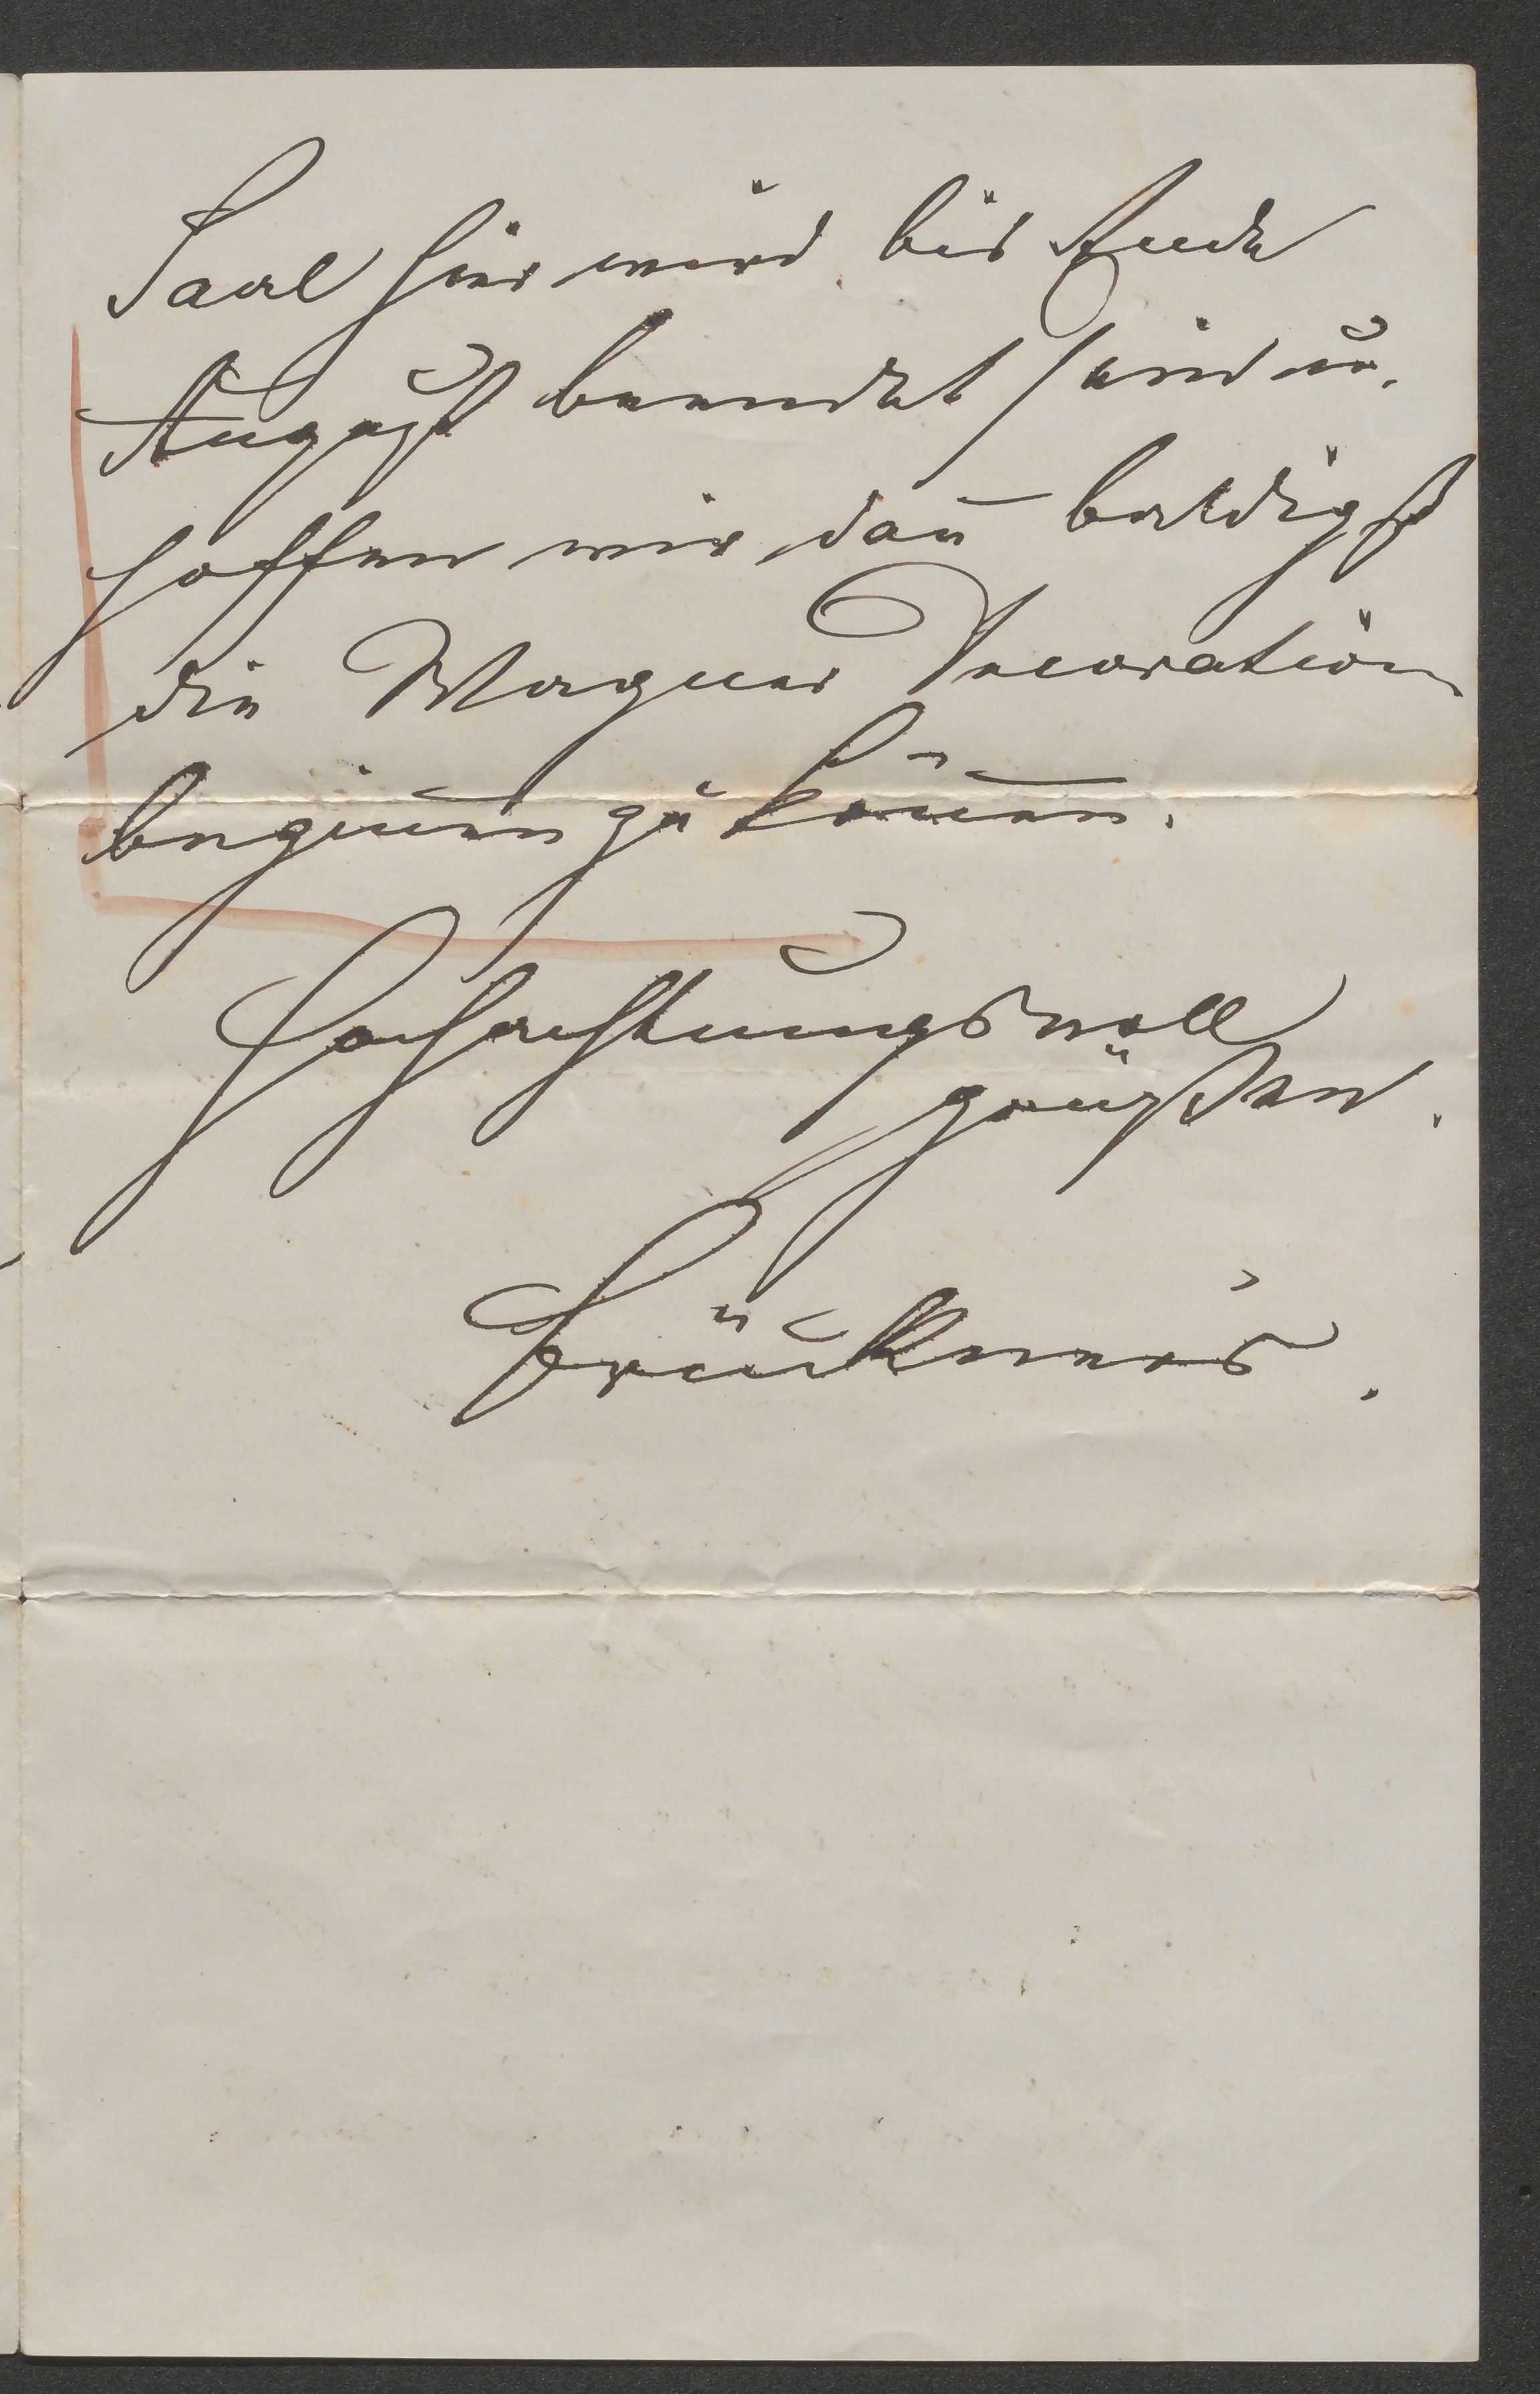 Saal hier wird bis Ende
August beendet sein u.
hoffen wir dan̄ baldigst
die Wagner Decoration
begin̄en zu kön̄en.
Hochachtungsvoll
grüßen.
Brückners.